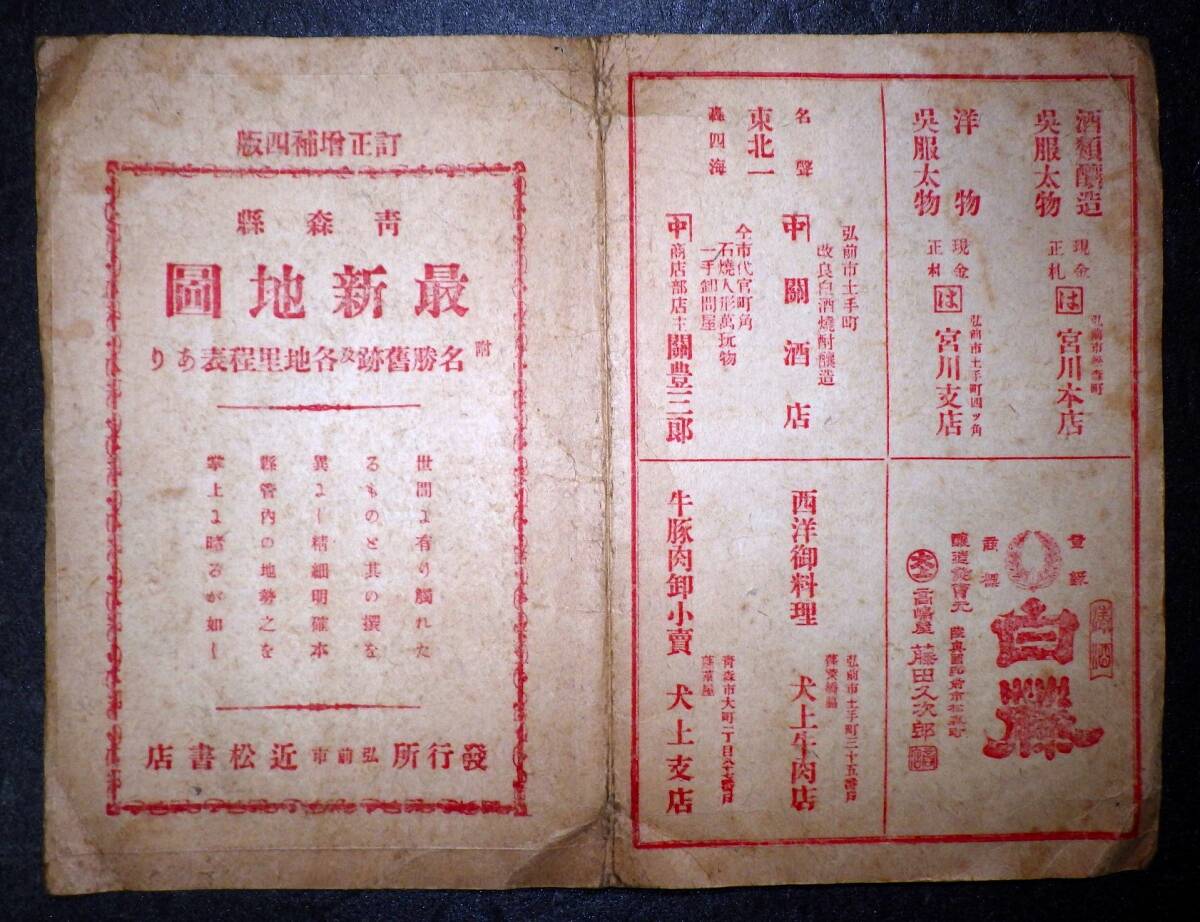 訂正增補四版
靑森縣
最新地圖
附名勝舊跡及各地里程表あり
世間に有り觸れた
るものと其の撰を
異にし精細明確本
縣管内の地勢之を
掌上に睹るが如し
發行所 弘前市 近松書店
酒類釀造
吳服太物
現金
正札
は
弘前市
町
宮川本店
洋物
吳服太物
現金
正札
は
弘前市土手町四ツ角
宮川支店
名聲
東北一
轟四海
弘前市土手町
改良白酒燒酎釀造
中 關酒店
仝市代官町角
石燒人形萬玩物
一手卸問屋
中 商店部店主 關豊三郎
登錄
商標
淸酒
白藤
釀造發賣元
高嶋屋 藤田久次郎
西洋御料理
弘前市土手町三十五番戶
犬上牛肉店
牛豚肉卸小賣
靑森市大町二丁目
犬上支店